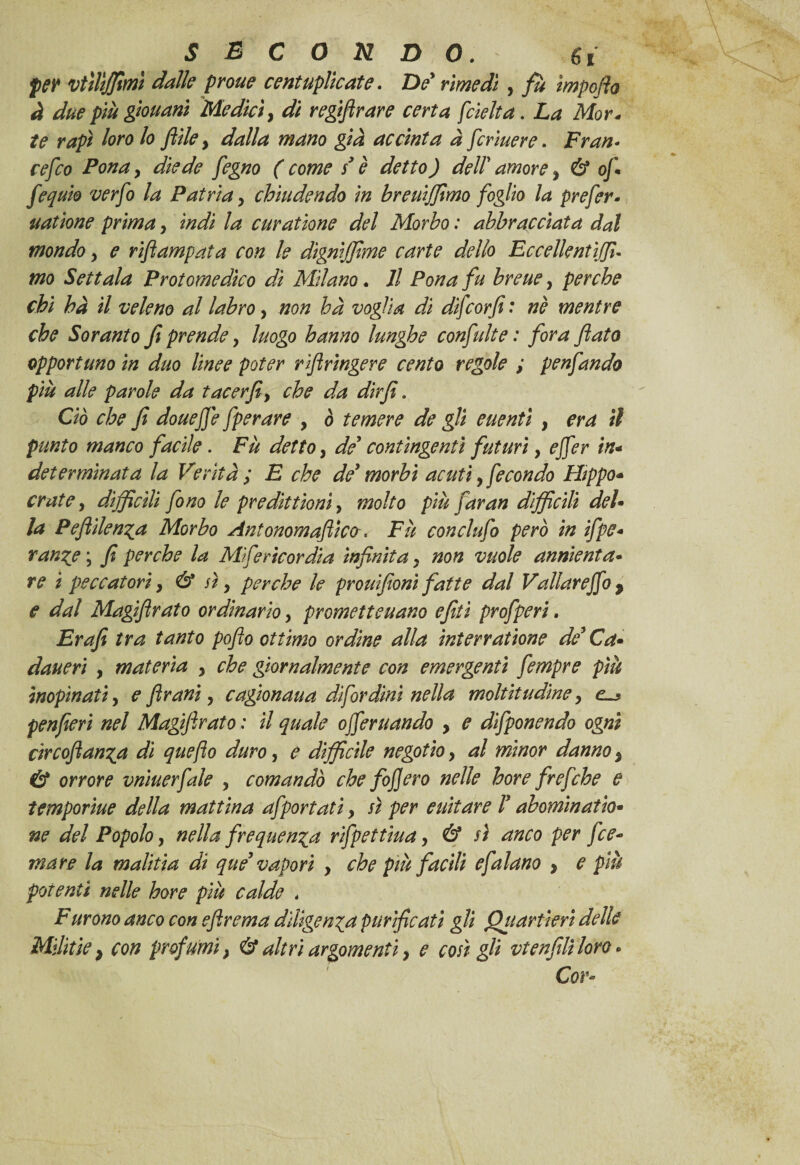 SECONDO. 61
per vtiliſſimi dalle proue centuplicate. De' rimedi, fù impoſto
à due più giouani Medici, di regiſtrare certa ſcielta. La Mor-
te rapì loro lo ſtile, dalla mano già accinta à ſcriuere. Fran-
ceſco Pona, diede ſegno (come s' è detto) dell' amore, & oſ-
ſequio verſo la Patria, chiudendo in breuiſſimo foglio la preſer-
uatione prima, indi la curatione del Morbo: abbracciata dal
mondo, e riſtampata con le digniſſime carte dello Eccellentiſſi-
mo Settala Protomedico di Milano. Il Pona fu breue, perche
chi hà il veleno al labro, non hà voglia di diſcorſi: nè mentre
che Soranto ſi prende, luogo hanno lunghe conſulte: fora ſtato
opportuno in duo linee poter riſtringere cento regole; penſando
più alle parole da tacerſi, che da dirſi.
Ciò che ſi doueſſe ſperare, ò temere de gli euenti, era il
punto manco facile. Fù detto, de' contingenti futuri, eſſer in-
determinata la Verità; E che de' morbi acuti, ſecondo Hippo-
crate, difficili ſono le predittioni, molto più ſaran difficili del-
la Peſtilenza Morbo Antonomaſtico. Fù concluſo però in iſpe-
ranze; ſi perche la Miſericordia infinita, non vuole annienta-
re i peccatori, & sì, perche le prouiſioni fatte dal Vallareſſo,
e dal Magiſtrato ordinario, prometteuano eſiti proſperi.
Eraſi tra tanto poſto ottimo ordine alla interratione de' Ca-
daueri, materia, che giornalmente con emergenti ſempre più
inopinati, e ſtrani, cagionaua diſordini nella moltitudine, e
penſieri nel Magiſtrato: il quale oſſeruando, e diſponendo ogni
circoſtanza di queſto duro, e difficile negotio, al minor danno,
& orrore vniuerſale, comandò che foſſero nelle hore freſche e
temporiue della mattina aſportati, sì per euitare l' abominatio-
ne del Popolo, nella frequenza riſpettiua, & sì anco per ſce-
mare la malitia di que' vapori, che più facili eſalano, e più
potenti nelle hore più calde.
Furono anco con eſtrema diligenza purificati gli Quartieri delle
Militie, con profumi, & altri argomenti, e così gli vtenſili loro.
Cor-